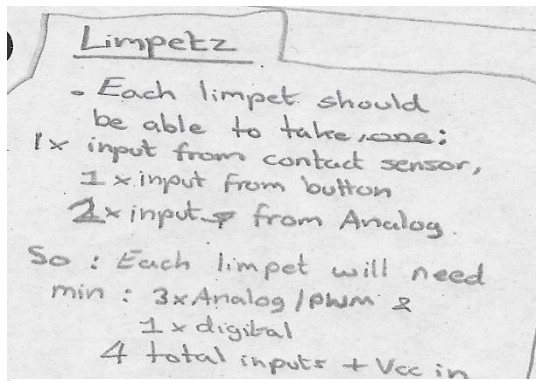 Limpetz
- Each limpet should
be able to take, one:
1x input from contact sensor,
1 x input from button
2x inputs from Analog.
So : Each limpet will need
min : 3xAnalog/pwm &
1 x digital
4 total inputs + Vcc in